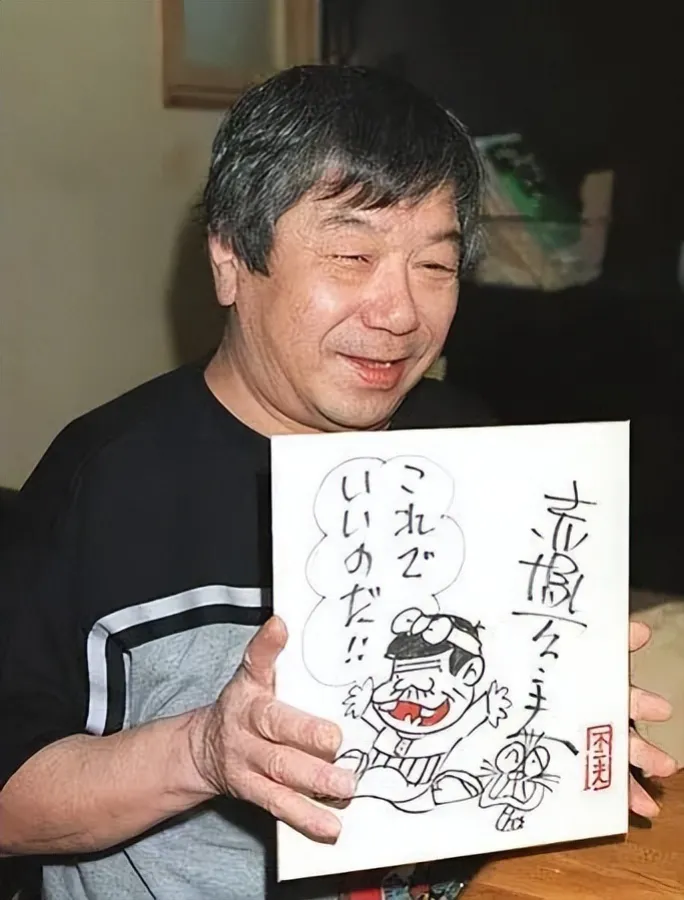 赤塚不二夫
これで
いいのだ!!
不二夫